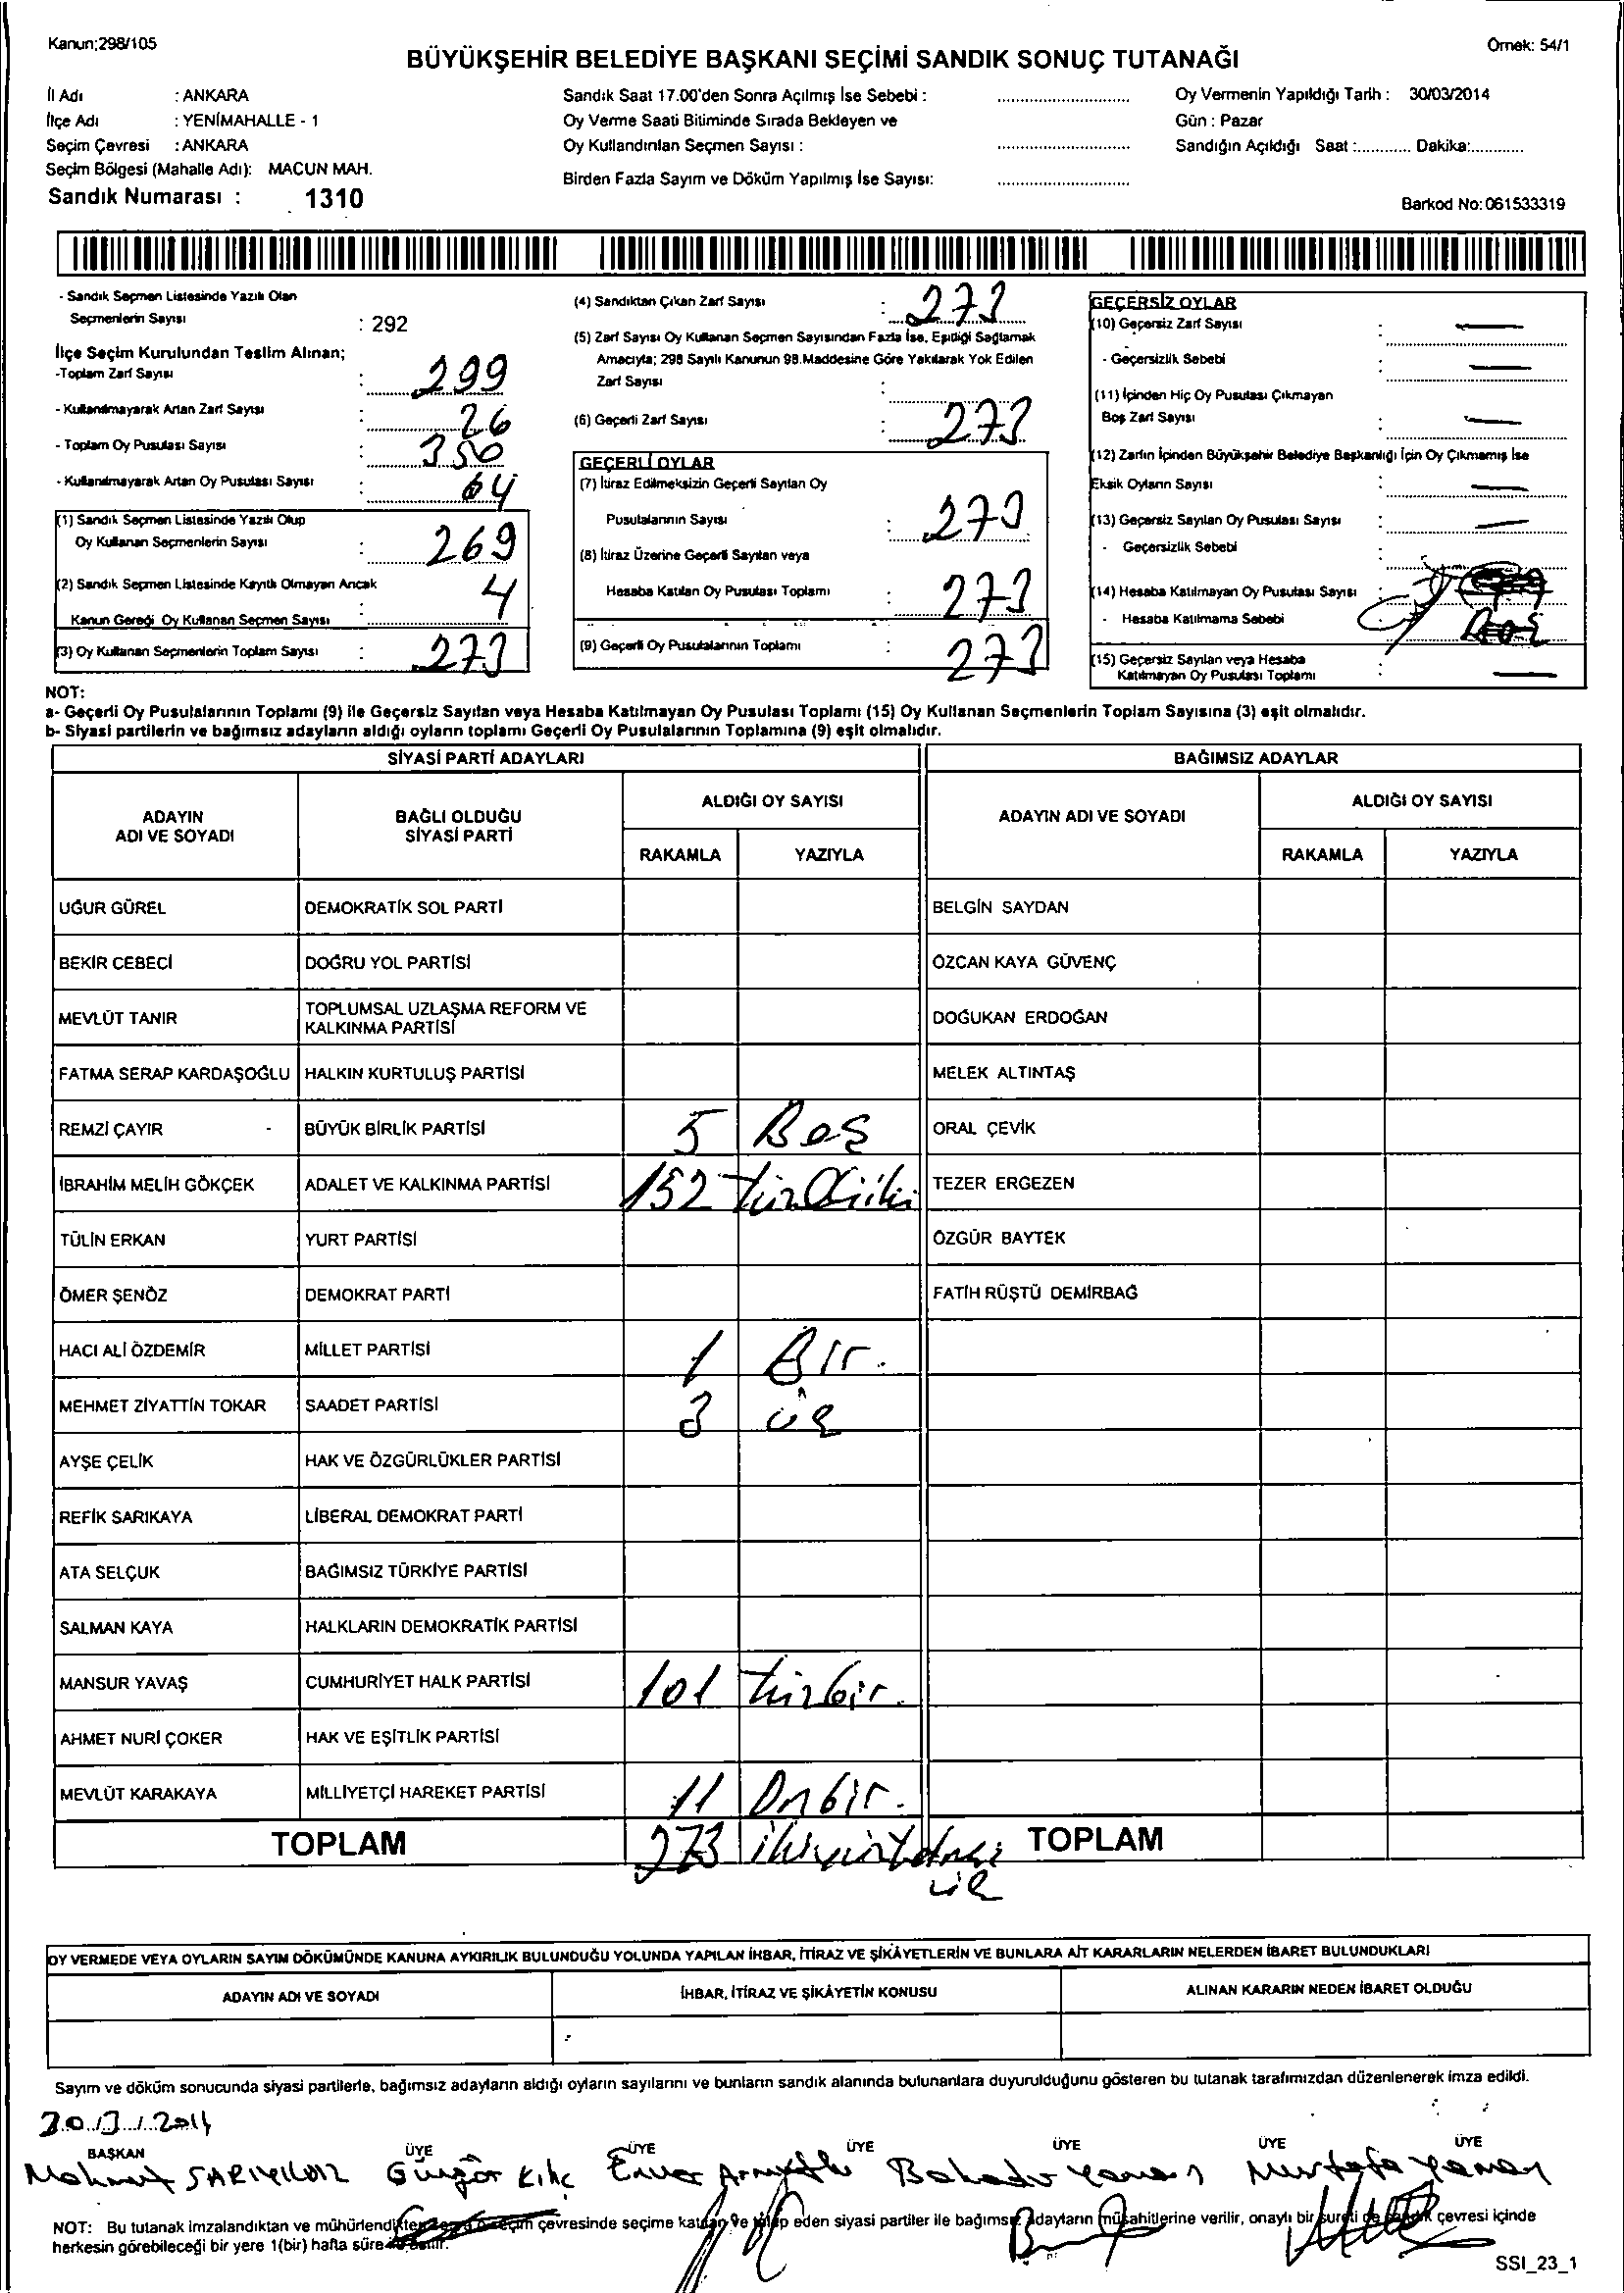 Kanun;298/105
Örnek: 54/1
BÜYÜKŞEHİR BELEDİYE BAŞKANI SEÇİMİ SANDIK SONUÇ TUTANAĞI
İl Adı : ANKARA
İlçe Adı : YENİMAHALLE - 1
Seçim Çevresi : ANKARA
Seçim Bölgesi (Mahalle Adı): MACUN MAH.
Sandık Numarası : 1310
Sandık Saat 17.00'den Sonra Açılmış İse Sebebi :
Oy Verme Saati Bitiminde Sırada Bekleyen ve
Oy Kullandırılan Seçmen Sayısı :
Birden Fazla Sayım ve Döküm Yapılmış İse Sayısı:
Oy Vermenin Yapıldığı Tarih : 30/03/2014
Gün : Pazar
Sandığın Açıldığı Saat :............ Dakika:............
Barkod No: 061533319
- Sandık Seçmen Listesinde Yazılı Olan
Seçmenlerin Sayısı : 292
İlçe Seçim Kurulundan Teslim Alınan;
-Toplam Zarf Sayısı : 299
- Kullanılmayarak Artan Zarf Sayısı : 26
- Toplam Oy Pusulası Sayısı : 350
- Kullanılmayarak Artan Oy Pusulası Sayısı : 64
(1) Sandık Seçmen Listesinde Yazılı Olup
Oy Kullanan Seçmenlerin Sayısı : 269
(2) Sandık Seçmen Listesinde Kayıtlı Olmayan Ancak
Kanun Gereği Oy Kullanan Seçmen Sayısı : 4
(3) Oy Kullanan Seçmenlerin Toplam Sayısı : 273
(4) Sandıktan Çıkan Zarf Sayısı : 273
(5) Zarf Sayısı Oy Kullanan Seçmen Sayısından Fazla İse, Eşitliği Sağlamak
Amacıyla; 298 Sayılı Kanunun 98.Maddesine Göre Yakılarak Yok Edilen
Zarf Sayısı :
(6) Geçerli Zarf Sayısı : 273
GEÇERLİ OYLAR
(7) İtiraz Edilmeksizin Geçerli Sayılan Oy
Pusulalarının Sayısı : 273
(8) İtiraz Üzerine Geçerli Sayılan veya
Hesaba Katılan Oy Pusulası Toplamı : 273
(9) Geçerli Oy Pusulalarının Toplamı : 273
GEÇERSİZ OYLAR
(10) Geçersiz Zarf Sayısı : —
- Geçersizlik Sebebi : —
(11) İçinden Hiç Oy Pusulası Çıkmayan
Boş Zarf Sayısı : —
(12) Zarfın İçinden Büyükşehir Belediye Başkanlığı İçin Oy Çıkmamış İse
Eksik Oyların Sayısı : —
(13) Geçersiz Sayılan Oy Pusulası Sayısı : —
- Geçersizlik Sebebi :
(14) Hesaba Katılmayan Oy Pusulası Sayısı :
- Hesaba Katılmama Sebebi
(15) Geçersiz Sayılan veya Hesaba
Katılmayan Oy Pusulası Toplamı : —
NOT:
a- Geçerli Oy Pusulalarının Toplamı (9) ile Geçersiz Sayılan veya Hesaba Katılmayan Oy Pusulası Toplamı (15) Oy Kullanan Seçmenlerin Toplam Sayısına (3) eşit olmalıdır.
b- Siyasi partilerin ve bağımsız adayların aldığı oyların toplamı Geçerli Oy Pusulalarının Toplamına (9) eşit olmalıdır.
SİYASİ PARTİ ADAYLARI BAĞIMSIZ ADAYLAR
ADAYIN ADI VE SOYADI BAĞLI OLDUĞU SİYASİ PARTİ ALDIĞI OY SAYISI ADAYIN ADI VE SOYADI ALDIĞI OY SAYISI
RAKAMLA YAZIYLA RAKAMLA YAZIYLA
UĞUR GÜREL DEMOKRATİK SOL PARTİ BELGİN SAYDAN
BEKİR CEBECİ DOĞRU YOL PARTİSİ ÖZCAN KAYA GÜVENÇ
MEVLÜT TANIR TOPLUMSAL UZLAŞMA REFORM VE KALKINMA PARTİSİ DOĞUKAN ERDOĞAN
FATMA SERAP KARDAŞOĞLU HALKIN KURTULUŞ PARTİSİ MELEK ALTINTAŞ
REMZİ ÇAYIR - BÜYÜK BİRLİK PARTİSİ 5 Beş ORAL ÇEVİK
İBRAHİM MELİH GÖKÇEK ADALET VE KALKINMA PARTİSİ 152 TEZER ERGEZEN
TÜLİN ERKAN YURT PARTİSİ ÖZGÜR BAYTEK
ÖMER ŞENÖZ DEMOKRAT PARTİ FATİH RÜŞTÜ DEMİRBAĞ
HACI ALİ ÖZDEMİR MİLLET PARTİSİ 1 Bir.
MEHMET ZİYATTİN TOKAR SAADET PARTİSİ 3 üç
AYŞE ÇELİK HAK VE ÖZGÜRLÜKLER PARTİSİ
REFİK SARIKAYA LİBERAL DEMOKRAT PARTİ
ATA SELÇUK BAĞIMSIZ TÜRKİYE PARTİSİ
SALMAN KAYA HALKLARIN DEMOKRATİK PARTİSİ
MANSUR YAVAŞ CUMHURİYET HALK PARTİSİ 101 Yüzbir.
AHMET NURİ ÇOKER HAK VE EŞİTLİK PARTİSİ
MEVLÜT KARAKAYA MİLLİYETÇİ HAREKET PARTİSİ 11 Onbir.
TOPLAM 273 TOPLAM
üç
OY VERMEDE VEYA OYLARIN SAYIM DÖKÜMÜNDE KANUNA AYKIRILIK BULUNDUĞU YOLUNDA YAPILAN İHBAR, İTİRAZ VE ŞİKÂYETLERİN VE BUNLARA AİT KARARLARIN NELERDEN İBARET BULUNDUKLARI
ADAYIN ADI VE SOYADI İHBAR, İTİRAZ VE ŞİKÂYETİN KONUSU ALINAN KARARIN NEDEN İBARET OLDUĞU
Sayım ve döküm sonucunda siyasi partilerle, bağımsız adayların aldığı oyların sayılarını ve bunların sandık alanında bulunanlara duyurulduğunu gösteren bu tutanak tarafımızdan düzenlenerek imza edildi.
30./3./.2014
BAŞKAN ÜYE ÜYE ÜYE ÜYE ÜYE ÜYE
Mahmut SARIYILDIZ Güngör Kılıç Enver Bahadır Yaman Mustafa Yaman
NOT: Bu tutanak imzalandıktan ve mühürlendikten çevresinde seçime katılan ve talep eden siyasi partiler ile bağımsız adayların müşahitlerine verilir, onaylı bir sureti de sandık çevresi içinde
herkesin görebileceği bir yere 1(bir) hafta süre
SSI_23_1